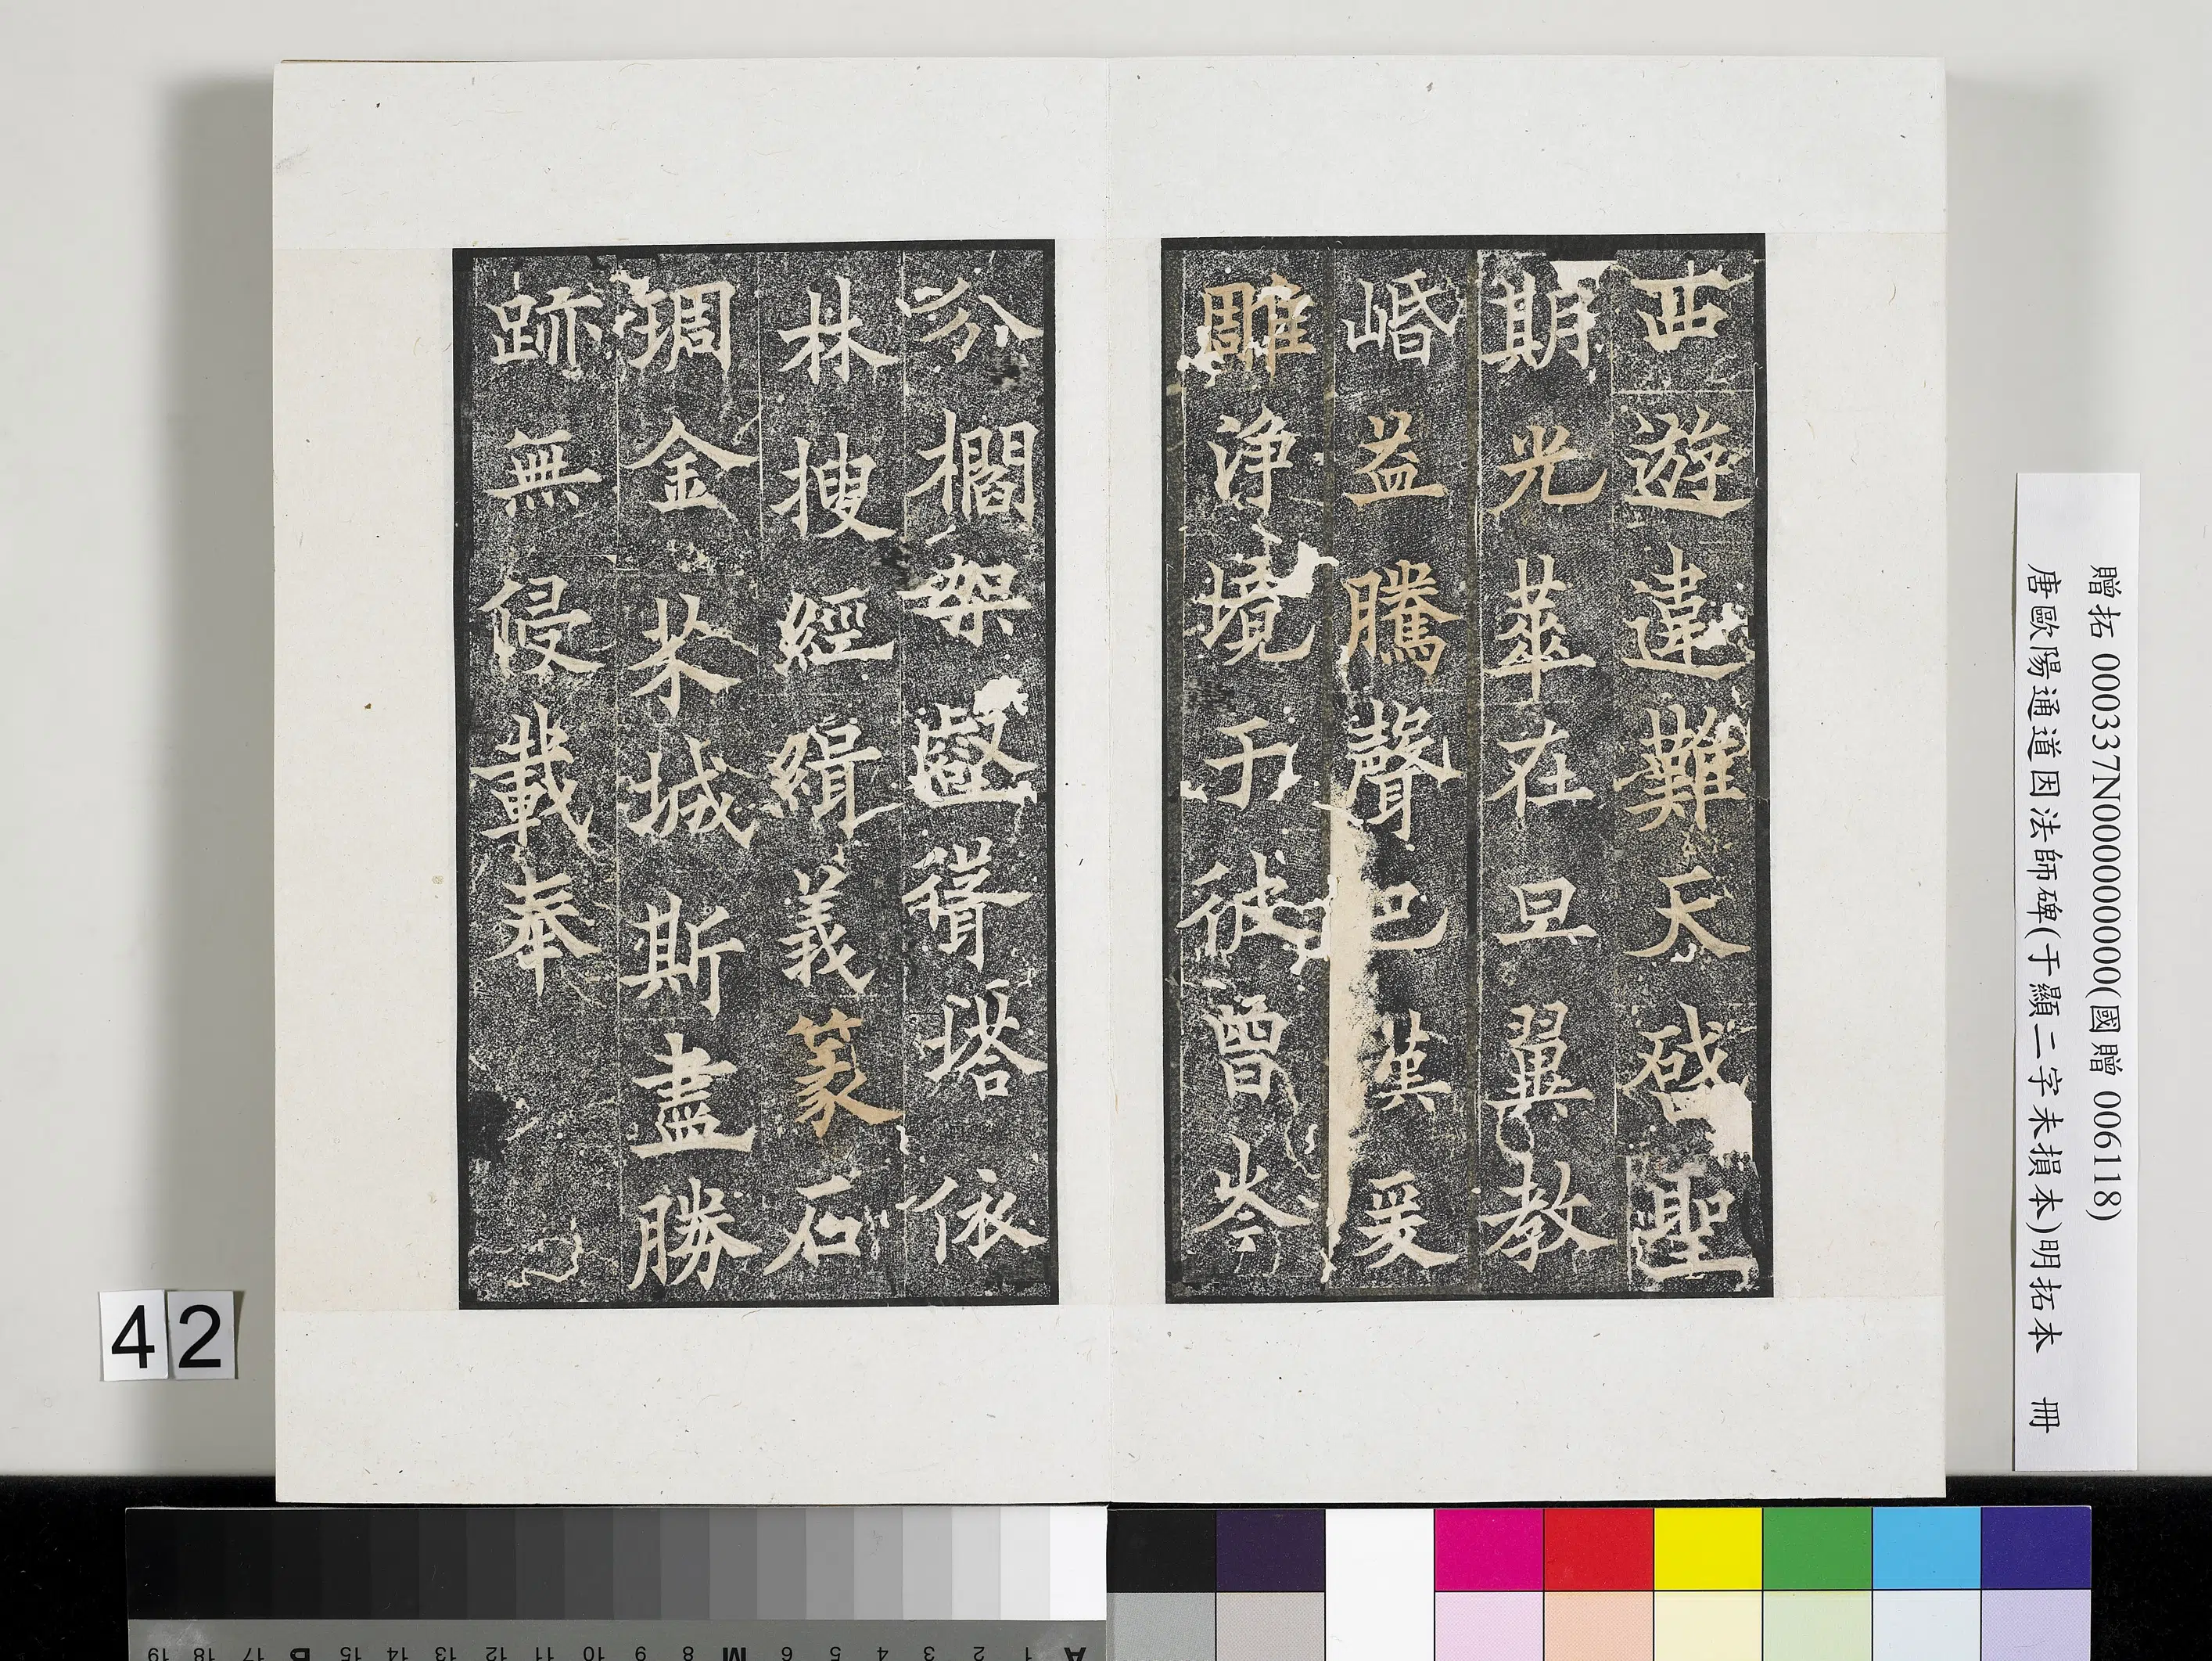 西遊違難天啟聖
期光華在旦翼教
崏益騰聲巴漢爰
雕淨境于彼曾岑
分櫩架壑聳塔依
林搜經緝義篆石
琱金芥城斯盡勝
跡無侵載奉
贈拓 000337N000000000(國贈 006118)
唐歐陽通道因法師碑(于顯二字未損本)明拓本 冊
42
A 1 2 3 4 5 6 M 8 9 10 11 12 13 14 15 B 17 18 19